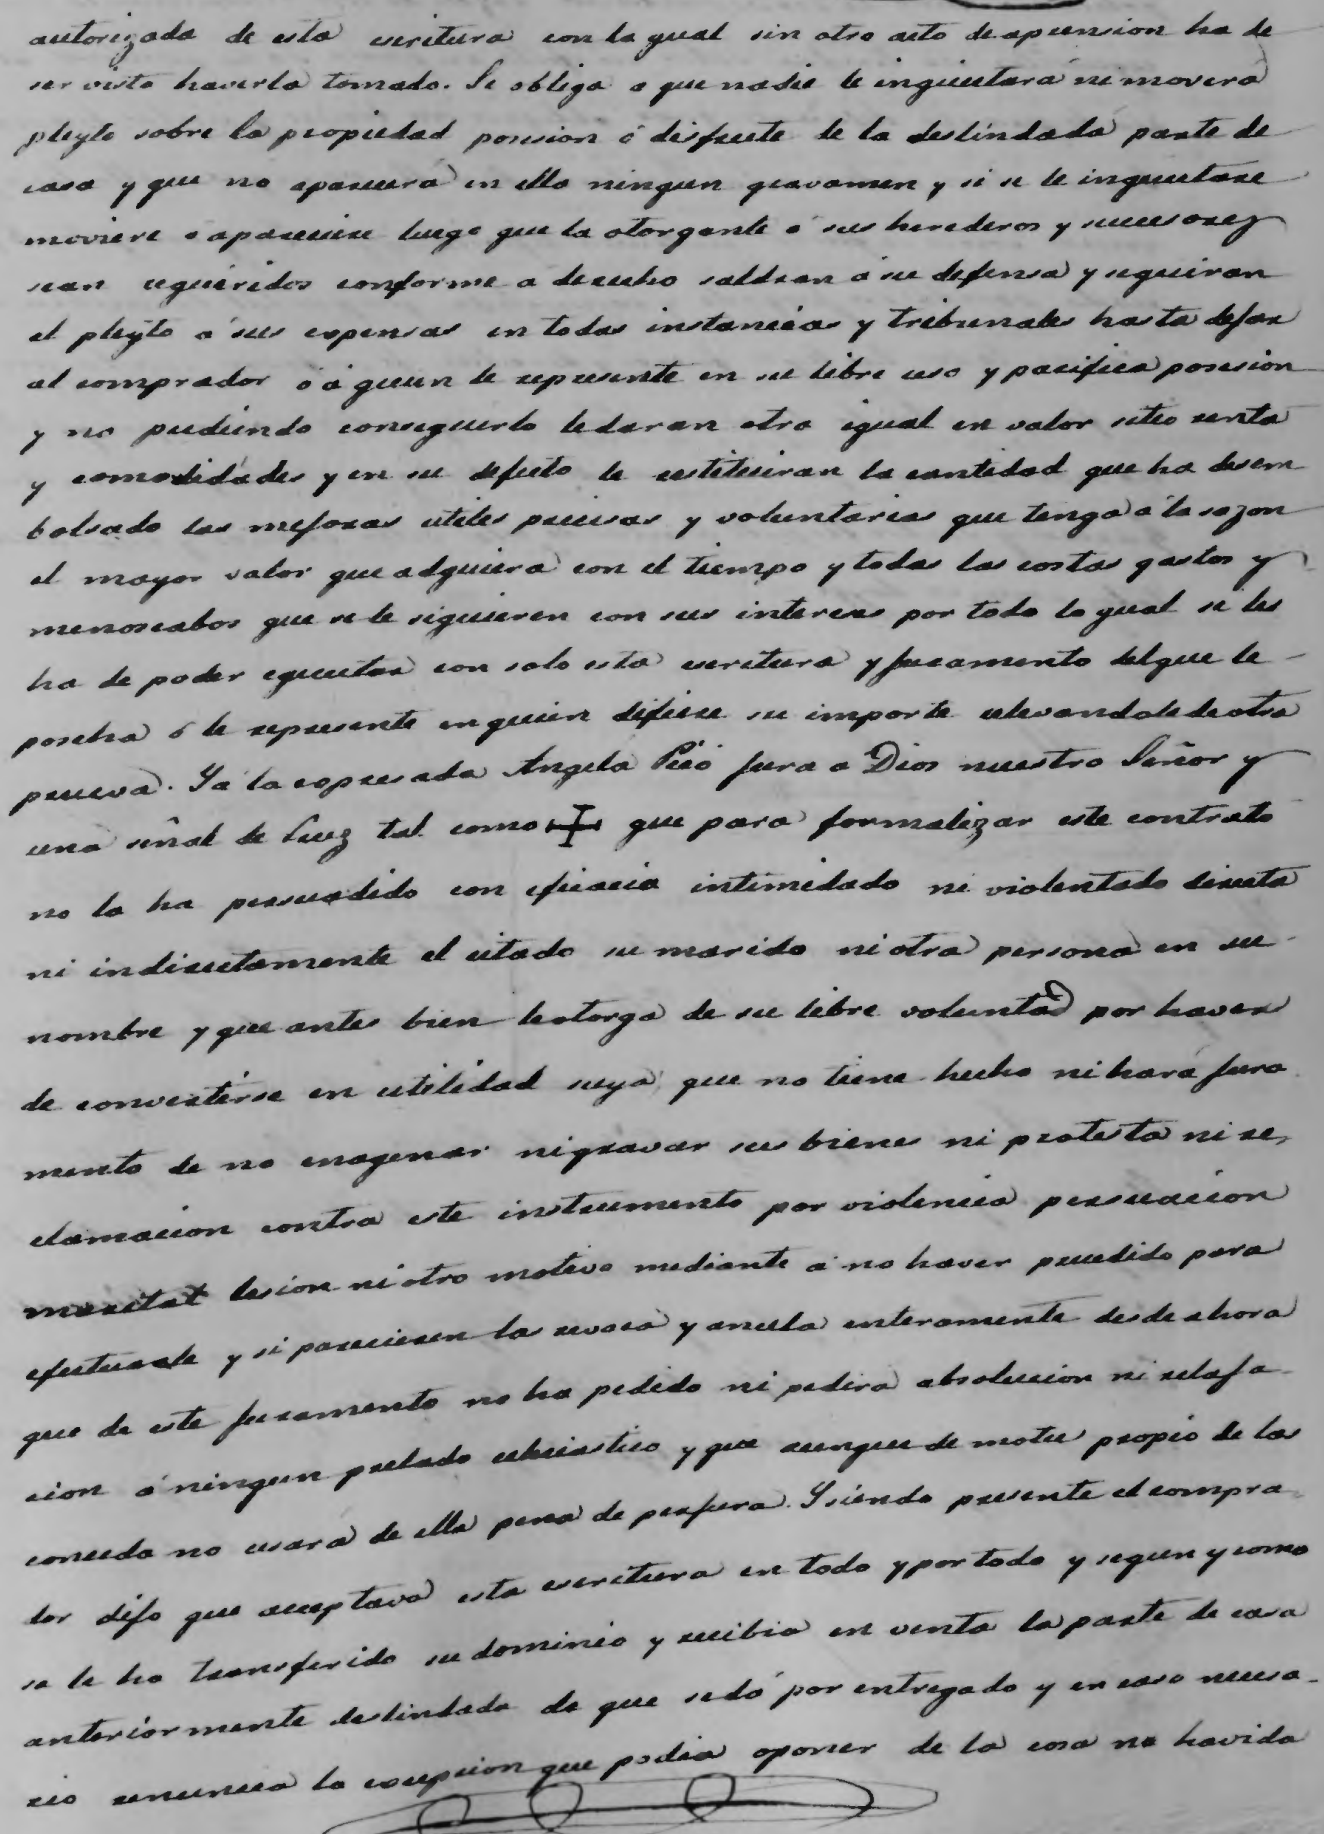 autorizada de esta escritura con la qual sin otro acto de apension ha de
ser visto haverla tomado. Se obliga a que nadie le inquietará ni moverá
pleyto sobre la propiedad posesion ó disfrute de la deslindada parte de
casa y que no aparecerá en ella ningun gravamen y si se le inquietare
moviere o apareciere luego que la otorgante ó sus herederos y succesorez
sean requeridos conforme a derecho saldran á su defensa y seguiran
el pleyto á sus expensas en todas instancias y tribunales hasta dejar
al comprador ó á quien le represente en su libre uso y pacifica posesion
y no pudiendo conseguirlo le daran otra igual en valor sitio renta
y comodidades y en su defecto le restituiran la cantidad que ha desem
bolsado las mejoras utiles precisas y voluntarias que tenga á la sazon
el mayor valor que adquiera con el tiempo y todas las costas gastos y
menoscabos que se le siguieren con sus intereses por todo lo qual se les
ha de poder executar con solo esta escritura y juramento del que le
poseha ó le represente en quien difiere su importe relevandole de otra
prueva. Ya la expresada Angela Picó jura a Dios nuestro Señor y
una señal de Cruz tal como que para formalizar este contrato
no la ha persuadido con eficacia intimidado ni violentado directa
ni indirectamente el citado su marido ni otra persona en su
nombre y que antes bien le otorga de su libre voluntad por haver
de convertirse en utilidad suya que no tiene hecho ni hará jura
mento de no enagenar ni gravar sus bienes ni protesta ni re,
clamacion contra este instrumento por violencia persuacion
maritat lesion ni otro motivo mediante á no haver precedido para
efectuarle y si pareciesen las revoca y anula enteramente desde ahora
que de este juramento no ha pedido ni pedira absolucion ni relaja
cion á ningun prelado eclesiastico y que aunque de motu propio de las
conceda no usará de ella pena de perjura. Y siendo presente el compra
dor dijo que aceptava esta escritura en todo y por todo y segun y como
se le ha transferido su dominio y recibia en venta la parte de casa
anteriormente deslindada de que se dó por entregado y en caso necesa
rio renuncia la excepcion que podia oponer de la cosa no havida